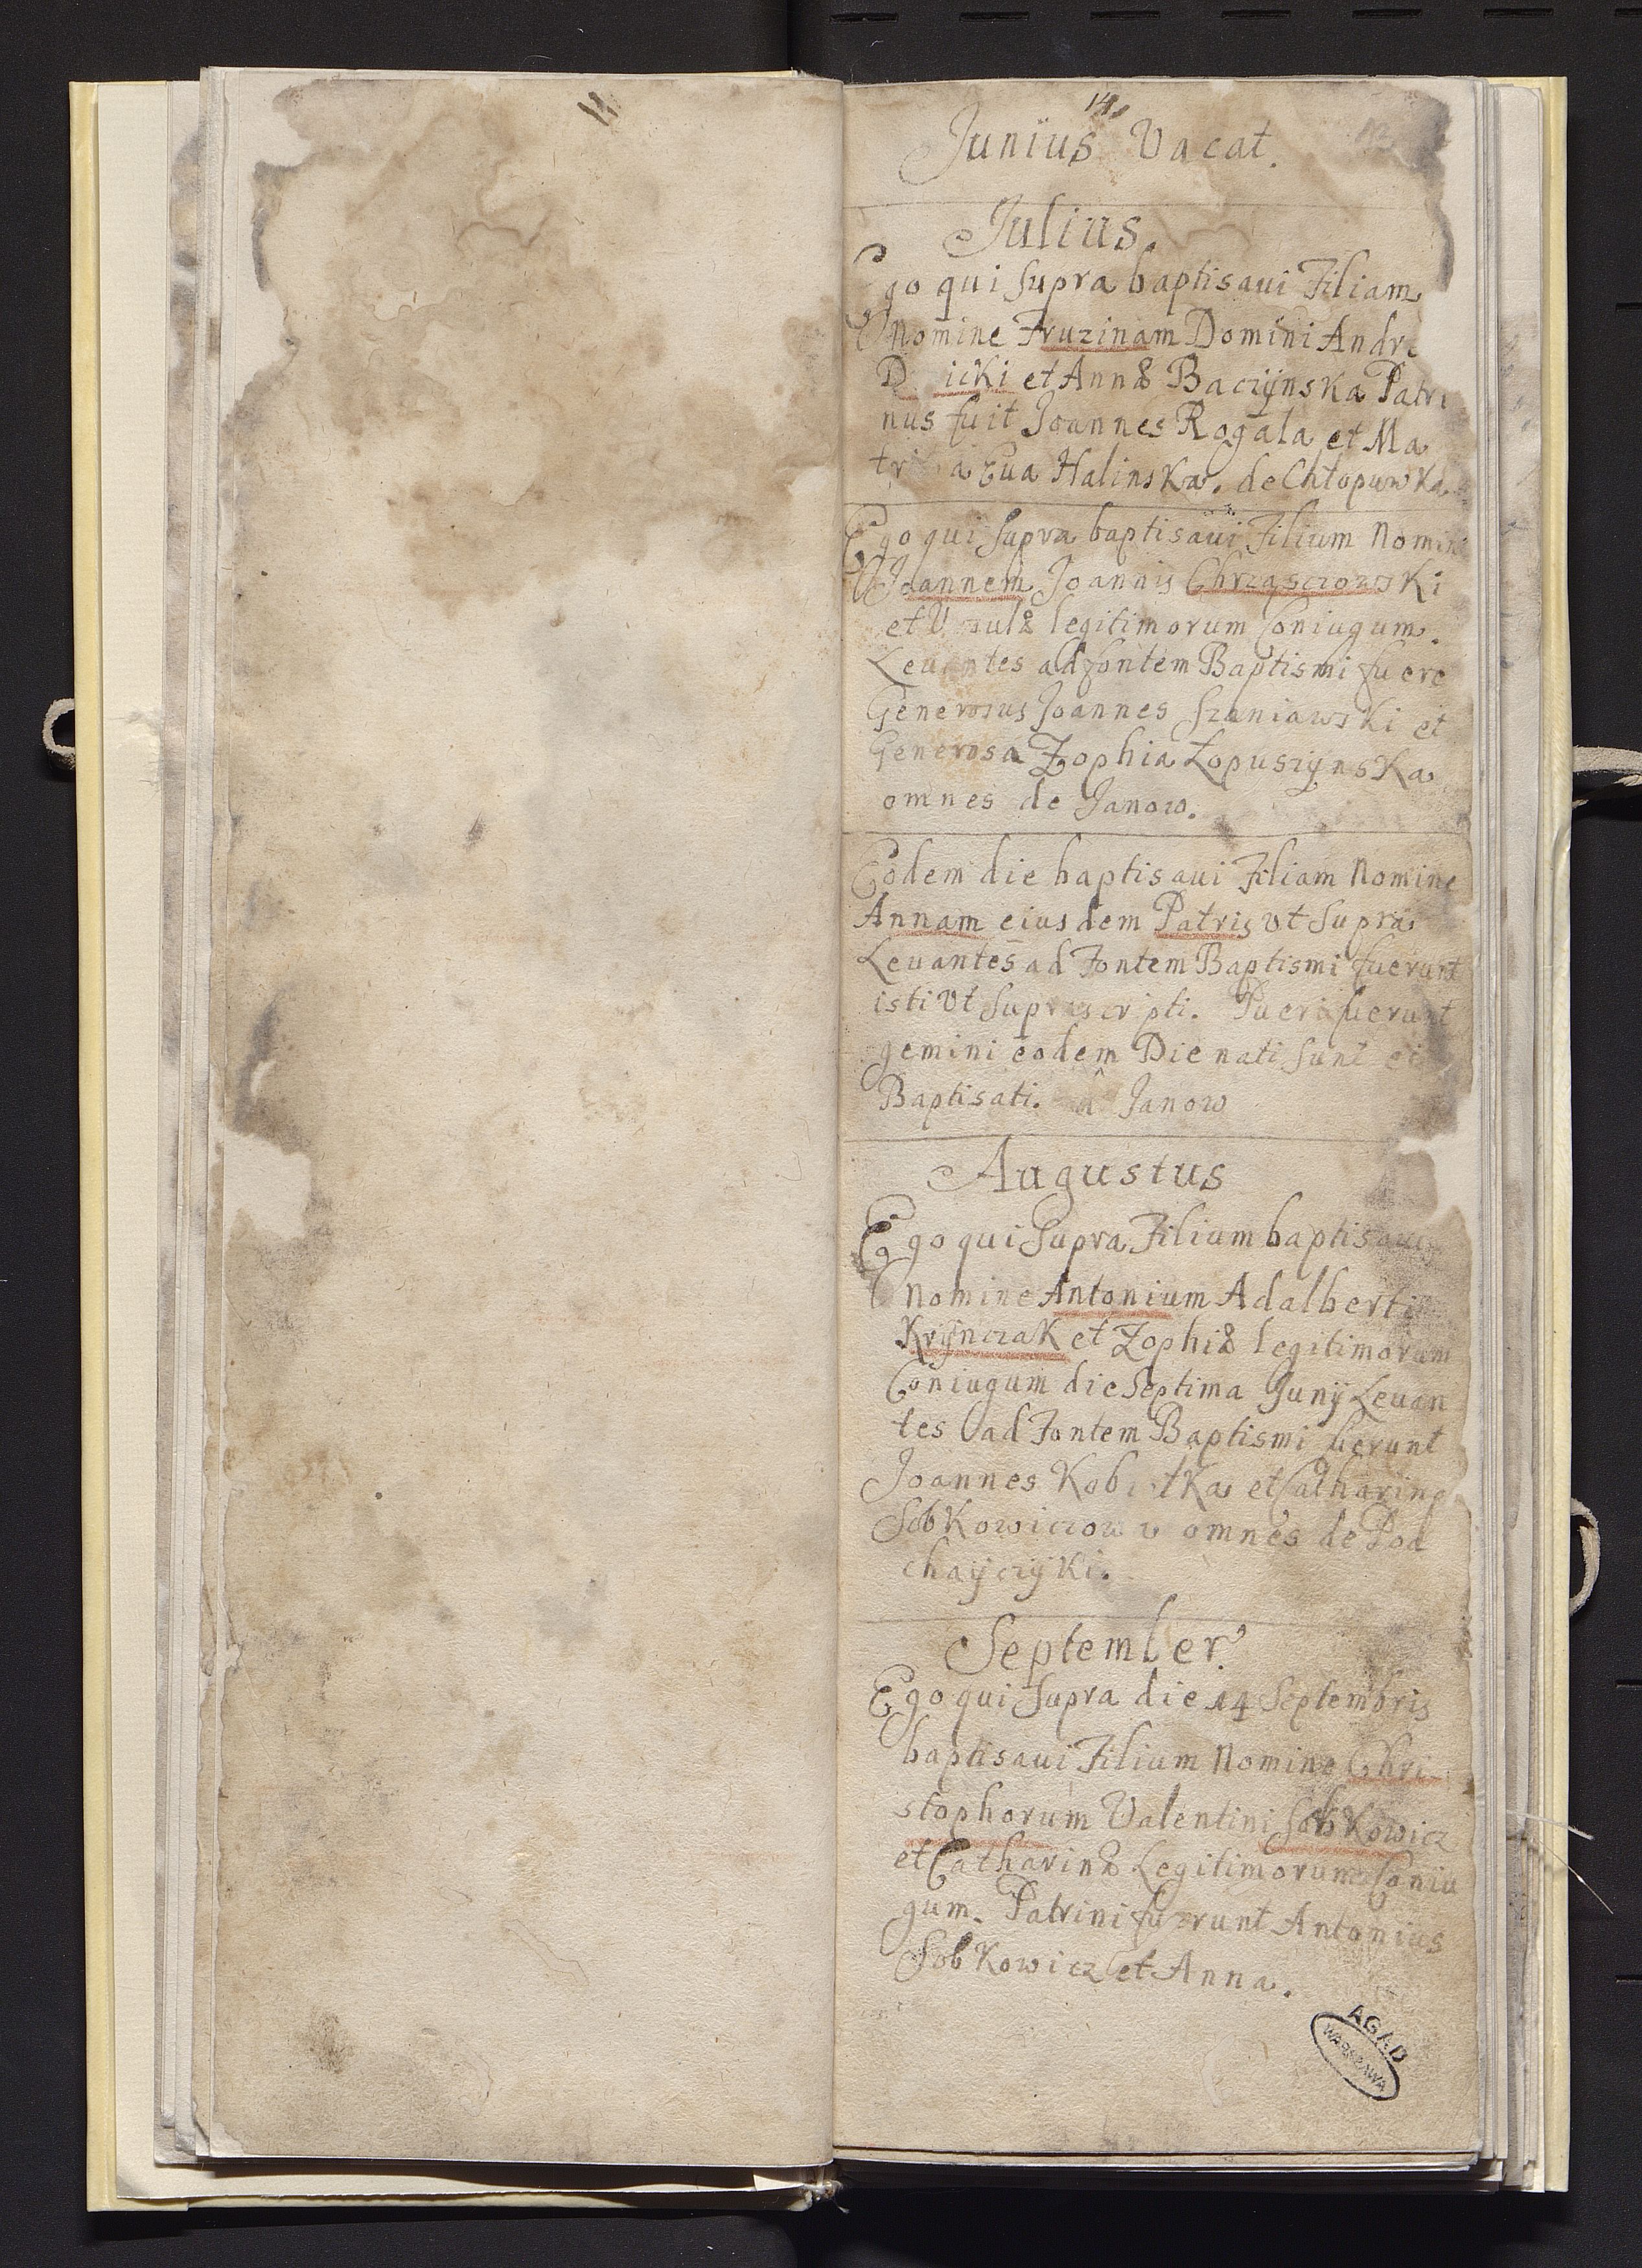 11
14
Junius Vacat.
Julius.
Ego qui supra baptisaui Filiam
Nomine Fruzinam Domini Andre
et Annæ Baczÿnska Patri
nus fuit Joannes Rogala et Ma
Eua Halinska. de Chłopuwka
Ego qui supra baptisaui Filium Nomine
Joannem Joannis Chrząsczowski
et legitimorum Coniugum.
Leuantes ad fontem Baptismi fuere
Generosus Joannes Szaniawski et
Generosa Zophia Łopuszÿnska
omnes de Janow.
Eodem die baptisaui Filiam Nomine
Annam eiusdem Patris vt supra
Leuantes ad Fontem Baptismi fuerunt
isti vt suprascripti. Pueri fuerunt
gemini eodem Die nati sunt et
Baptisati. â Janow
Augustus
Ego qui supra Filium baptisaui
Nomine Antonium Adalberti
Krÿnczak et Zophiæ legitimorum
Coniugum die septima Junÿ Leuan
tes ad Fontem Baptismi fuerunt
Joannes et Catharina
Sobkowiczow omnes de Pod
chaÿczÿki.
September.
Ego qui supra die 14 Septembris
baptisaui Filium Nomine Chri
stophorum Valentini Sobkowicz
et Catharinæ Legitimorum Coniu
gum. Patrini fuerunt Antonius
Sobkowicz et Anna.
AGAD
WARSZAWA